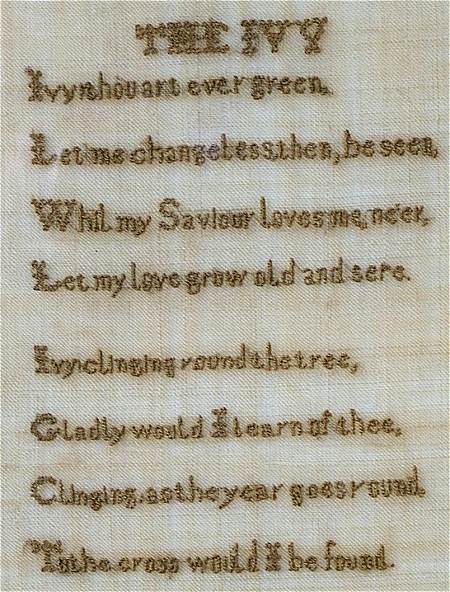 THE IVY
Ivy thou art ever green,
Let me changeless, then, be seen,
Whil my Saviour loves me, ne'er,
Let my love grow old and sere.
Ivy, clinging round the tree,
Gladly would I learn of thee,
Clinging, as the year goes round.
To the cross would I be found.